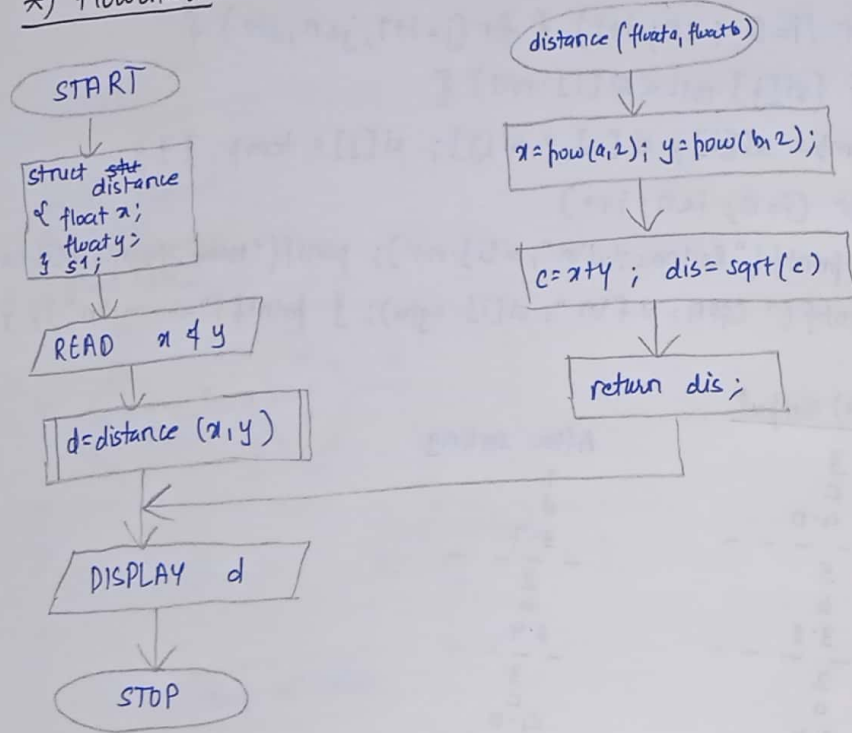 START
struct distance
{ float x;
float y;
} s1;
READ x & y
d=distance (x, y)
DISPLAY d
STOP
distance (float a, float b)
x=pow(a,2); y=pow(b,2);
c=x+y ; dis=sqrt(c)
return dis;